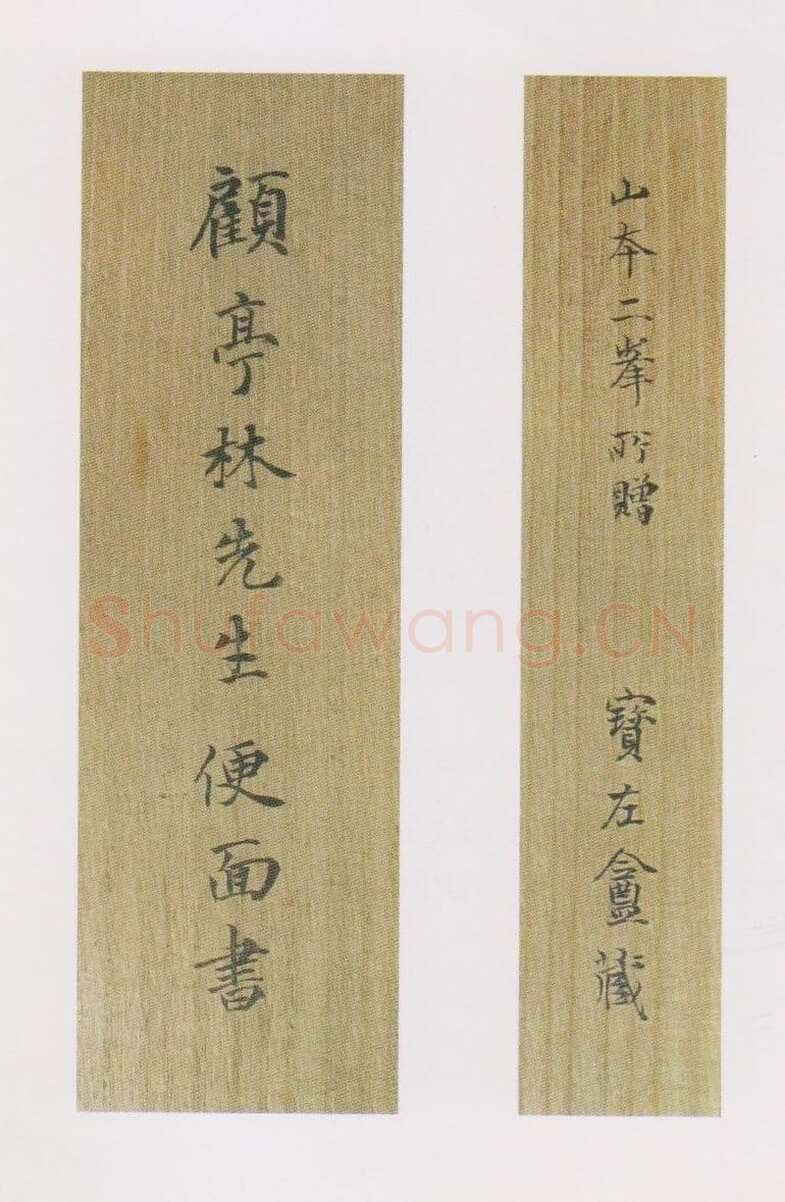 山本二峯所贈 寶左盦藏
顧亭林先生便面書
Shufawang.CN